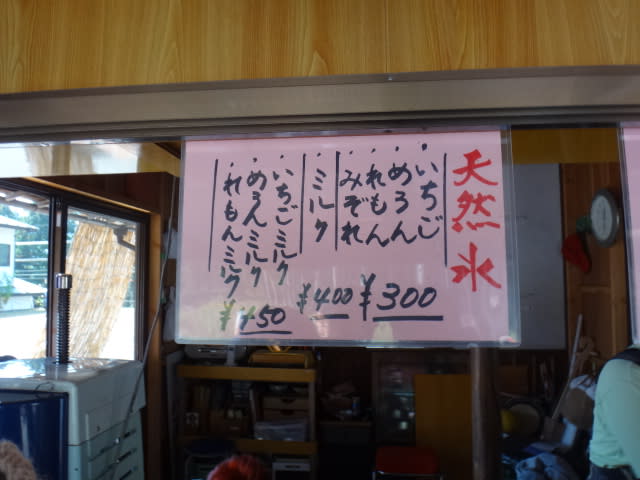 天然氷
・いちご
・めろん
・れもん
・みぞれ
¥300
・ミルク
¥400
・いちごミルク
・めろんミルク
・れもんミルク
¥450